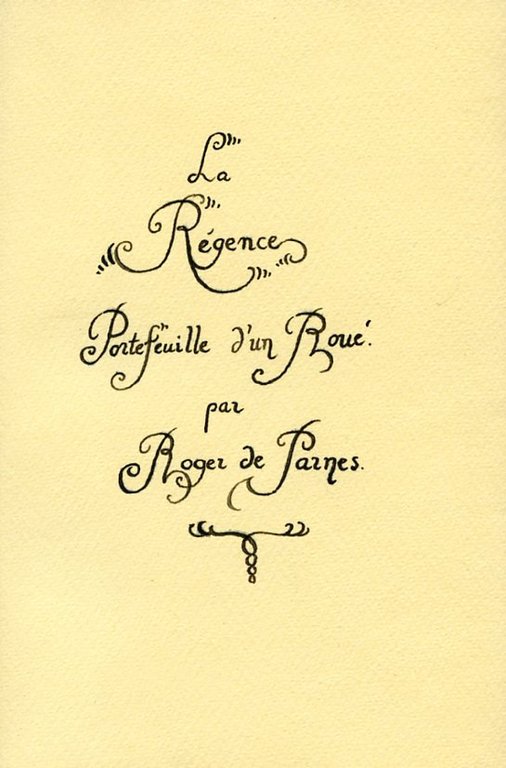 La
Régence
Portefeuille d'un Roué.
par
Roger de Parnes.